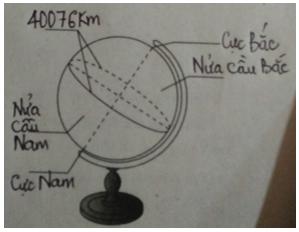 40076Km
Cực Bắc
Nửa cầu Bắc
Nửa
cầu
Nam
Cực Nam